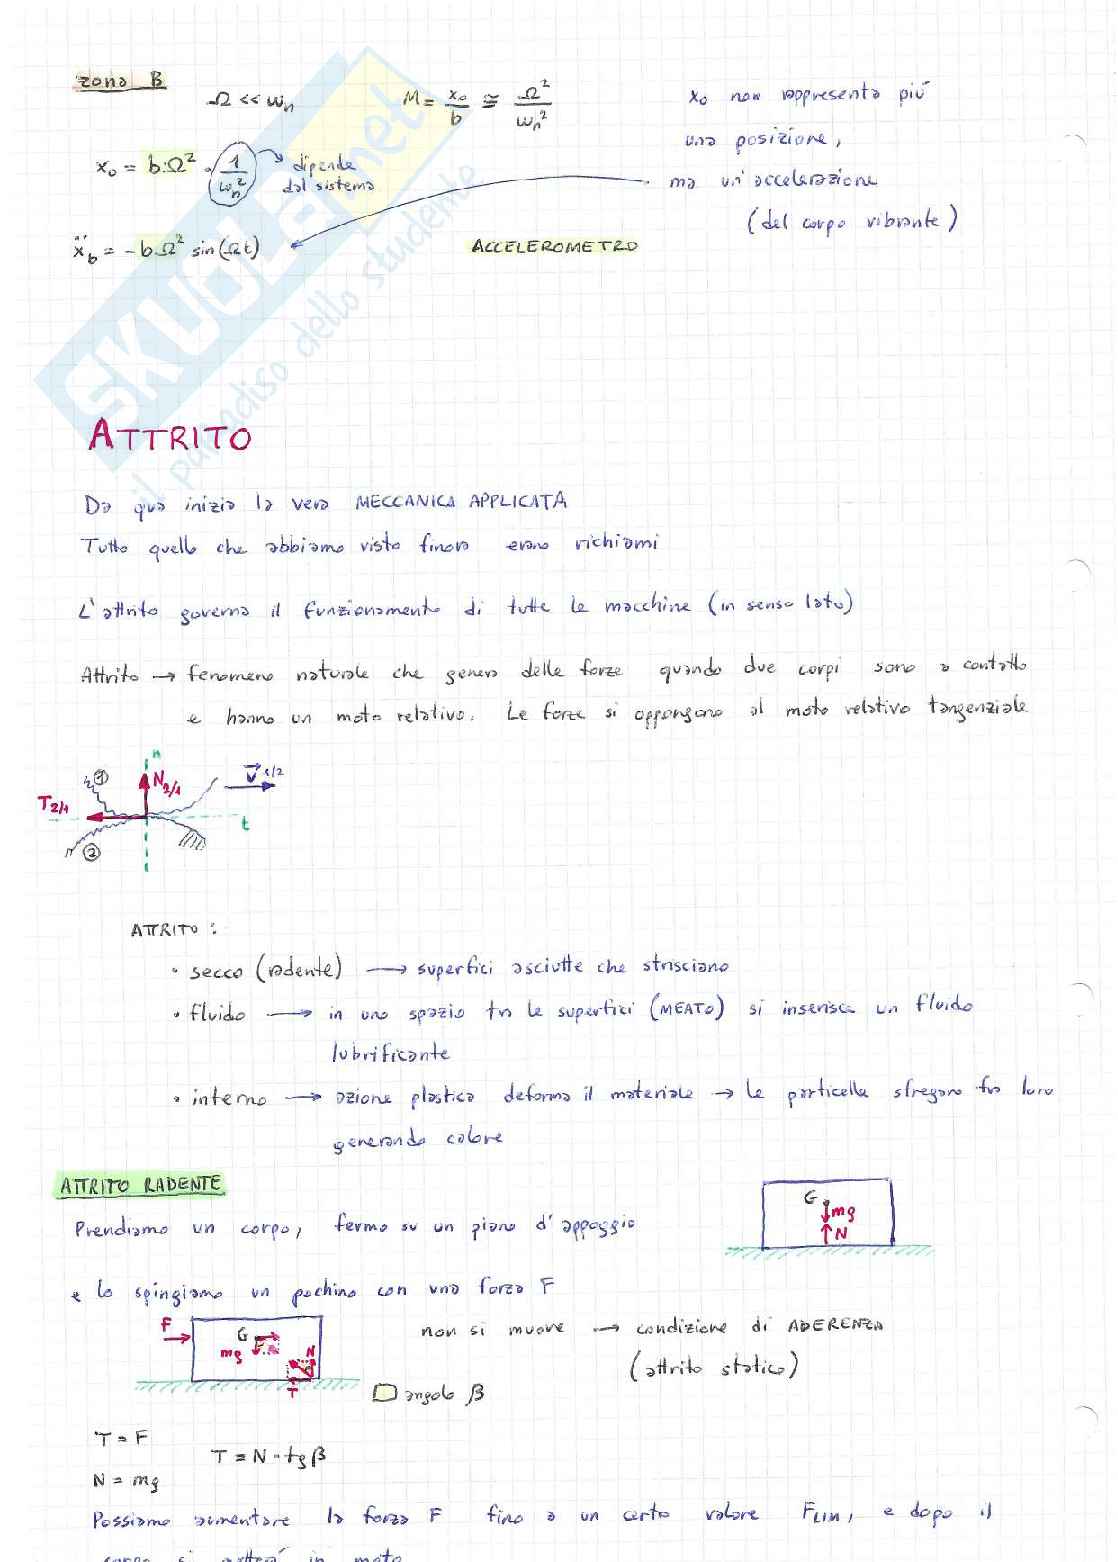 zona B
Ω << ωn   M = x₀/b ≅ Ω²/ωn²
x₀ non rappresenta più
una posizione,
ma un'accelerazione
(del corpo vibrante)
x₀ = b·Ω² · 1/ωn² → dipende dal sistema
ẍb = -b·Ω² sin(Ωt)
ACCELEROMETRO
SKUOLA.net
il paradiso dello studente
ATTRITO
Da qua inizia la vera MECCANICA APPLICATA
Tutto quello che abbiamo visto finora erano richiami
L'attrito governa il funzionamento di tutte le macchine (in senso lato)
Attrito → fenomeno naturale che genera delle forze quando due corpi sono a contatto
e hanno un moto relativo. Le forze si oppongono al moto relativo tangenziale
n
1 N2/1 v 1/2
T2/1
t
2
ATTRITO:
• secco (radente) → superfici asciutte che strisciano
• fluido → in uno spazio tra le superfici (MEATO) si inserisce un fluido
lubrificante
• interno → azione plastica deforma il materiale → le particelle sfregano fra loro
generando calore
ATTRITO RADENTE
G
mg
N
Prendiamo un corpo, fermo su un piano d'appoggio
e lo spingiamo un pochino con una forza F
F
G
mg
N
T
non si muove → condizione di ADERENZA
(attrito statico)
angolo β
T = F
T = N·tgβ
N = mg
Possiamo aumentare la forza F fino a un certo valore FLIM, e dopo il
corpo si metterà in moto